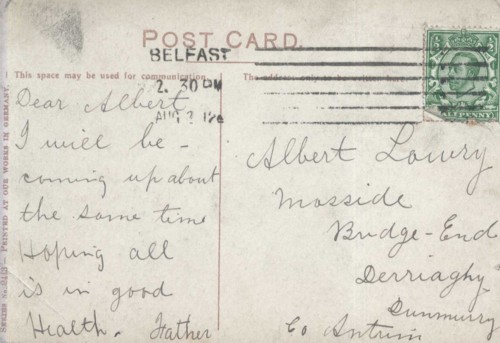 POST CARD.
BELFAST
2. 30 PM
AUG 2 12
This space may be used for communication.
The address only to be written here.
HALFPENNY
Dear Albert
I will be -
coming up about
the same time
Hoping all
is in good
Health. Father
Albert Lowry
Mosside
Bridge-End
Derriaghy
Dunmurry
Co Antrim
PRINTED AT OUR WORKS IN GERMANY.